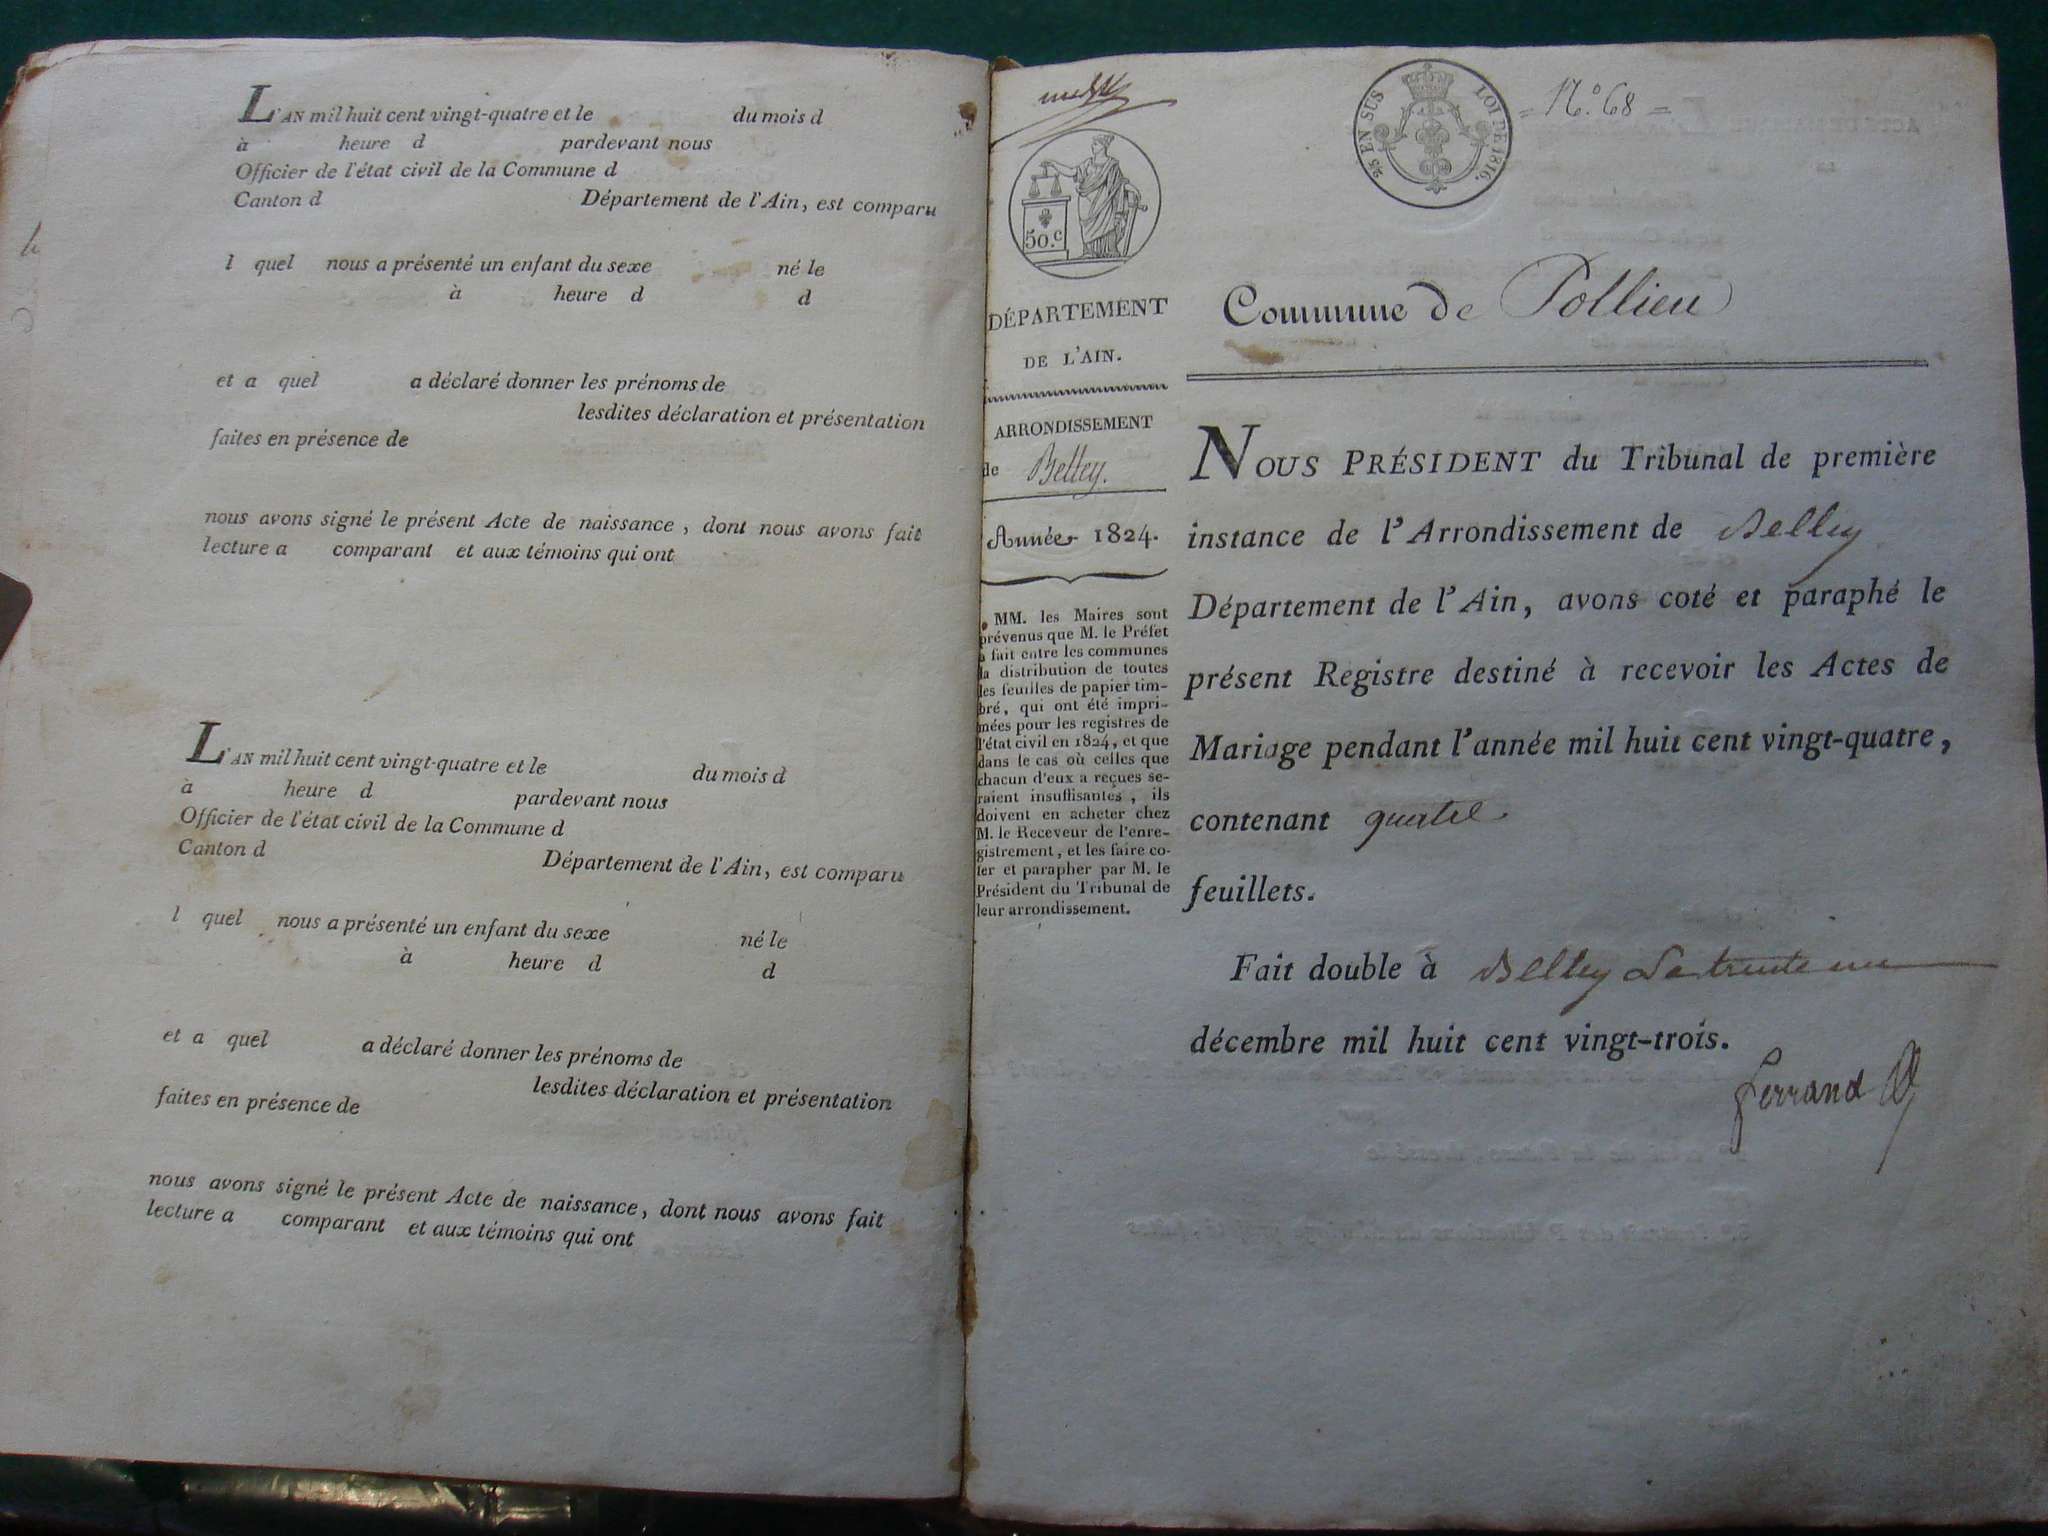 L'AN mil huit cent vingt-quatre et le du mois d
à heure d pardevant nous
Officier de l'état civil de la Commune d
Canton d Département de l'Ain, est comparu
l quel nous a présenté un enfant du sexe né le
à heure d d
et a quel a déclaré donner les prénoms de
lesdites déclaration et présentation
faites en présence de
nous avons signé le présent Acte de naissance, dont nous avons fait
lecture a comparant et aux témoins qui ont
L'AN mil huit cent vingt-quatre et le du mois d
à heure d pardevant nous
Officier de l'état civil de la Commune d
Canton d Département de l'Ain, est comparu
l quel nous a présenté un enfant du sexe né le
à heure d d
et a quel a déclaré donner les prénoms de
lesdites déclaration et présentation
faites en présence de
nous avons signé le présent Acte de naissance, dont nous avons fait
lecture a comparant et aux témoins qui ont
50.c
DÉPARTEMENT
DE L'AIN.
ARRONDISSEMENT
de Belley.
Année 1824.
MM. les Maires sont
prévenus que M. le Préfet
a fait entre les communes
la distribution de toutes
les feuilles de papier tim-
bré, qui ont été impri-
mées pour les registres de
l'état civil en 1824, et que
dans le cas où celles que
chacun d'eux a reçues se-
raient insuffisantes, ils
doivent en acheter chez
M. le Receveur de l'enre-
gistrement, et les faire co-
ter et parapher par M. le
Président du Tribunal de
leur arrondissement.
25 EN SUS LOI DE 1816.
= N.° 68 =
Commune de Pollieu
NOUS PRÉSIDENT du Tribunal de première
instance de l'Arrondissement de Belley
Département de l'Ain, avons coté et paraphé le
présent Registre destiné à recevoir les Actes de
Mariage pendant l'année mil huit cent vingt-quatre,
contenant quatre
feuillets.
Fait double à Belley Le trente un
décembre mil huit cent vingt-trois.
Ferrand